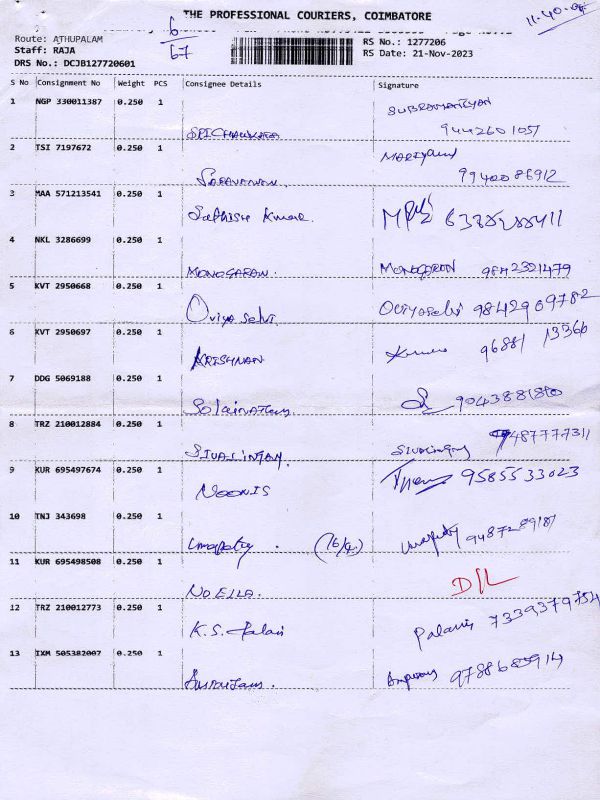 THE PROFESSIONAL COURIERS, COIMBATORE
11.40
Route: ATHUPALAM
6
67
RS No.: 1277206
Staff: RAJA
RS Date: 21-Nov-2023
DRS No.: DCJB127720601
S No Consignment No Weight PCS Consignee Details Signature
1 NGP 330011387 0.250 1
SUBRAMANIYAN
9442601057
2 TSI 7197672 0.250 1
Saravanan. 9940086912
3 MAA 571213541 0.250 1
Sathish Kumar.
4 NKL 3286699 0.250 1
MONOGARAN. MONOGARAN 9842321479
5 KVT 2950668 0.250 1
Oviya Selvi. Oviyaselvi 9842909782
6 KVT 2950697 0.250 1
KRISHNAN 96881 13366
7 DDG 5069188 0.250 1
8 TRZ 210012884 0.250 1
SIVALINGAM. 487777311
9 KUR 695497674 0.250 1
NOONIS 9585533023
10 TNJ 343698 0.250 1
Umapathy. (16/4) Umapathy
11 KUR 695498508 0.250 1
NOELLA. D/L
12 TRZ 210012773 0.250 1
K.S. Palani Palani 7339379754
13 IXM 505382007 0.250 1